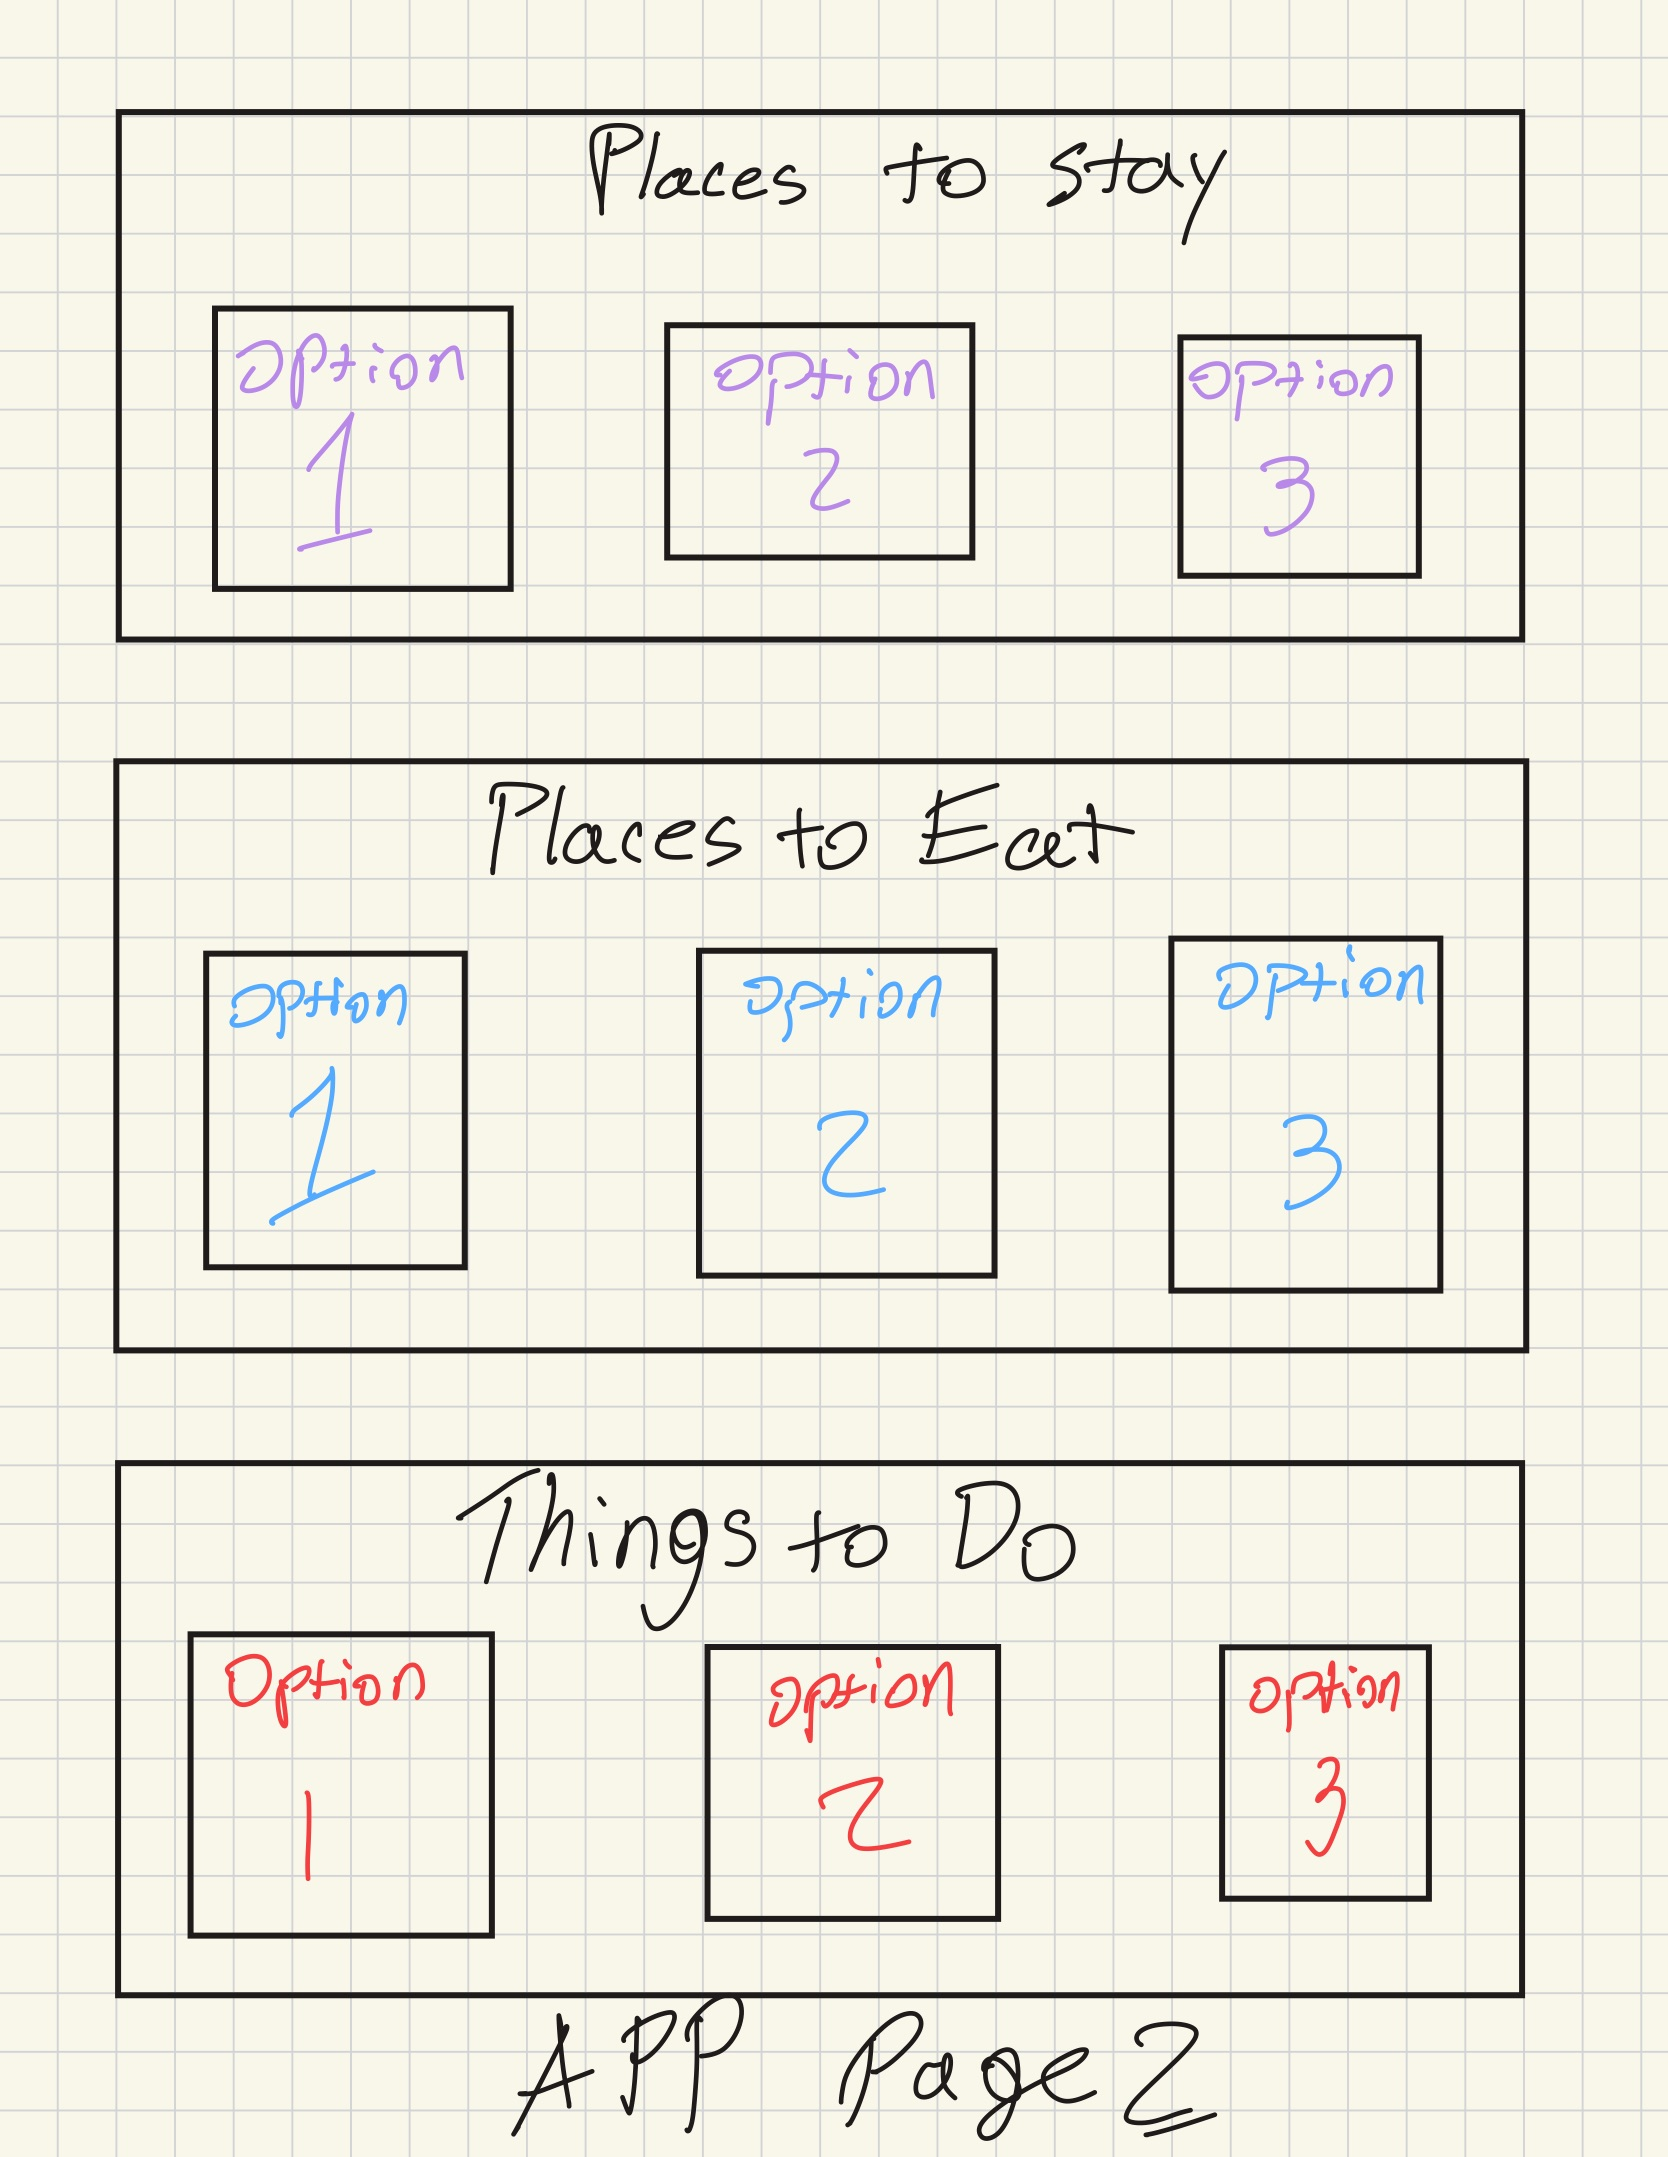 Places to stay
Option
1
Option
2
Option
3
Places to Eat
Option
1
Option
2
Option
3
Things to Do
Option
1
Option
2
Option
3
APP Page 2